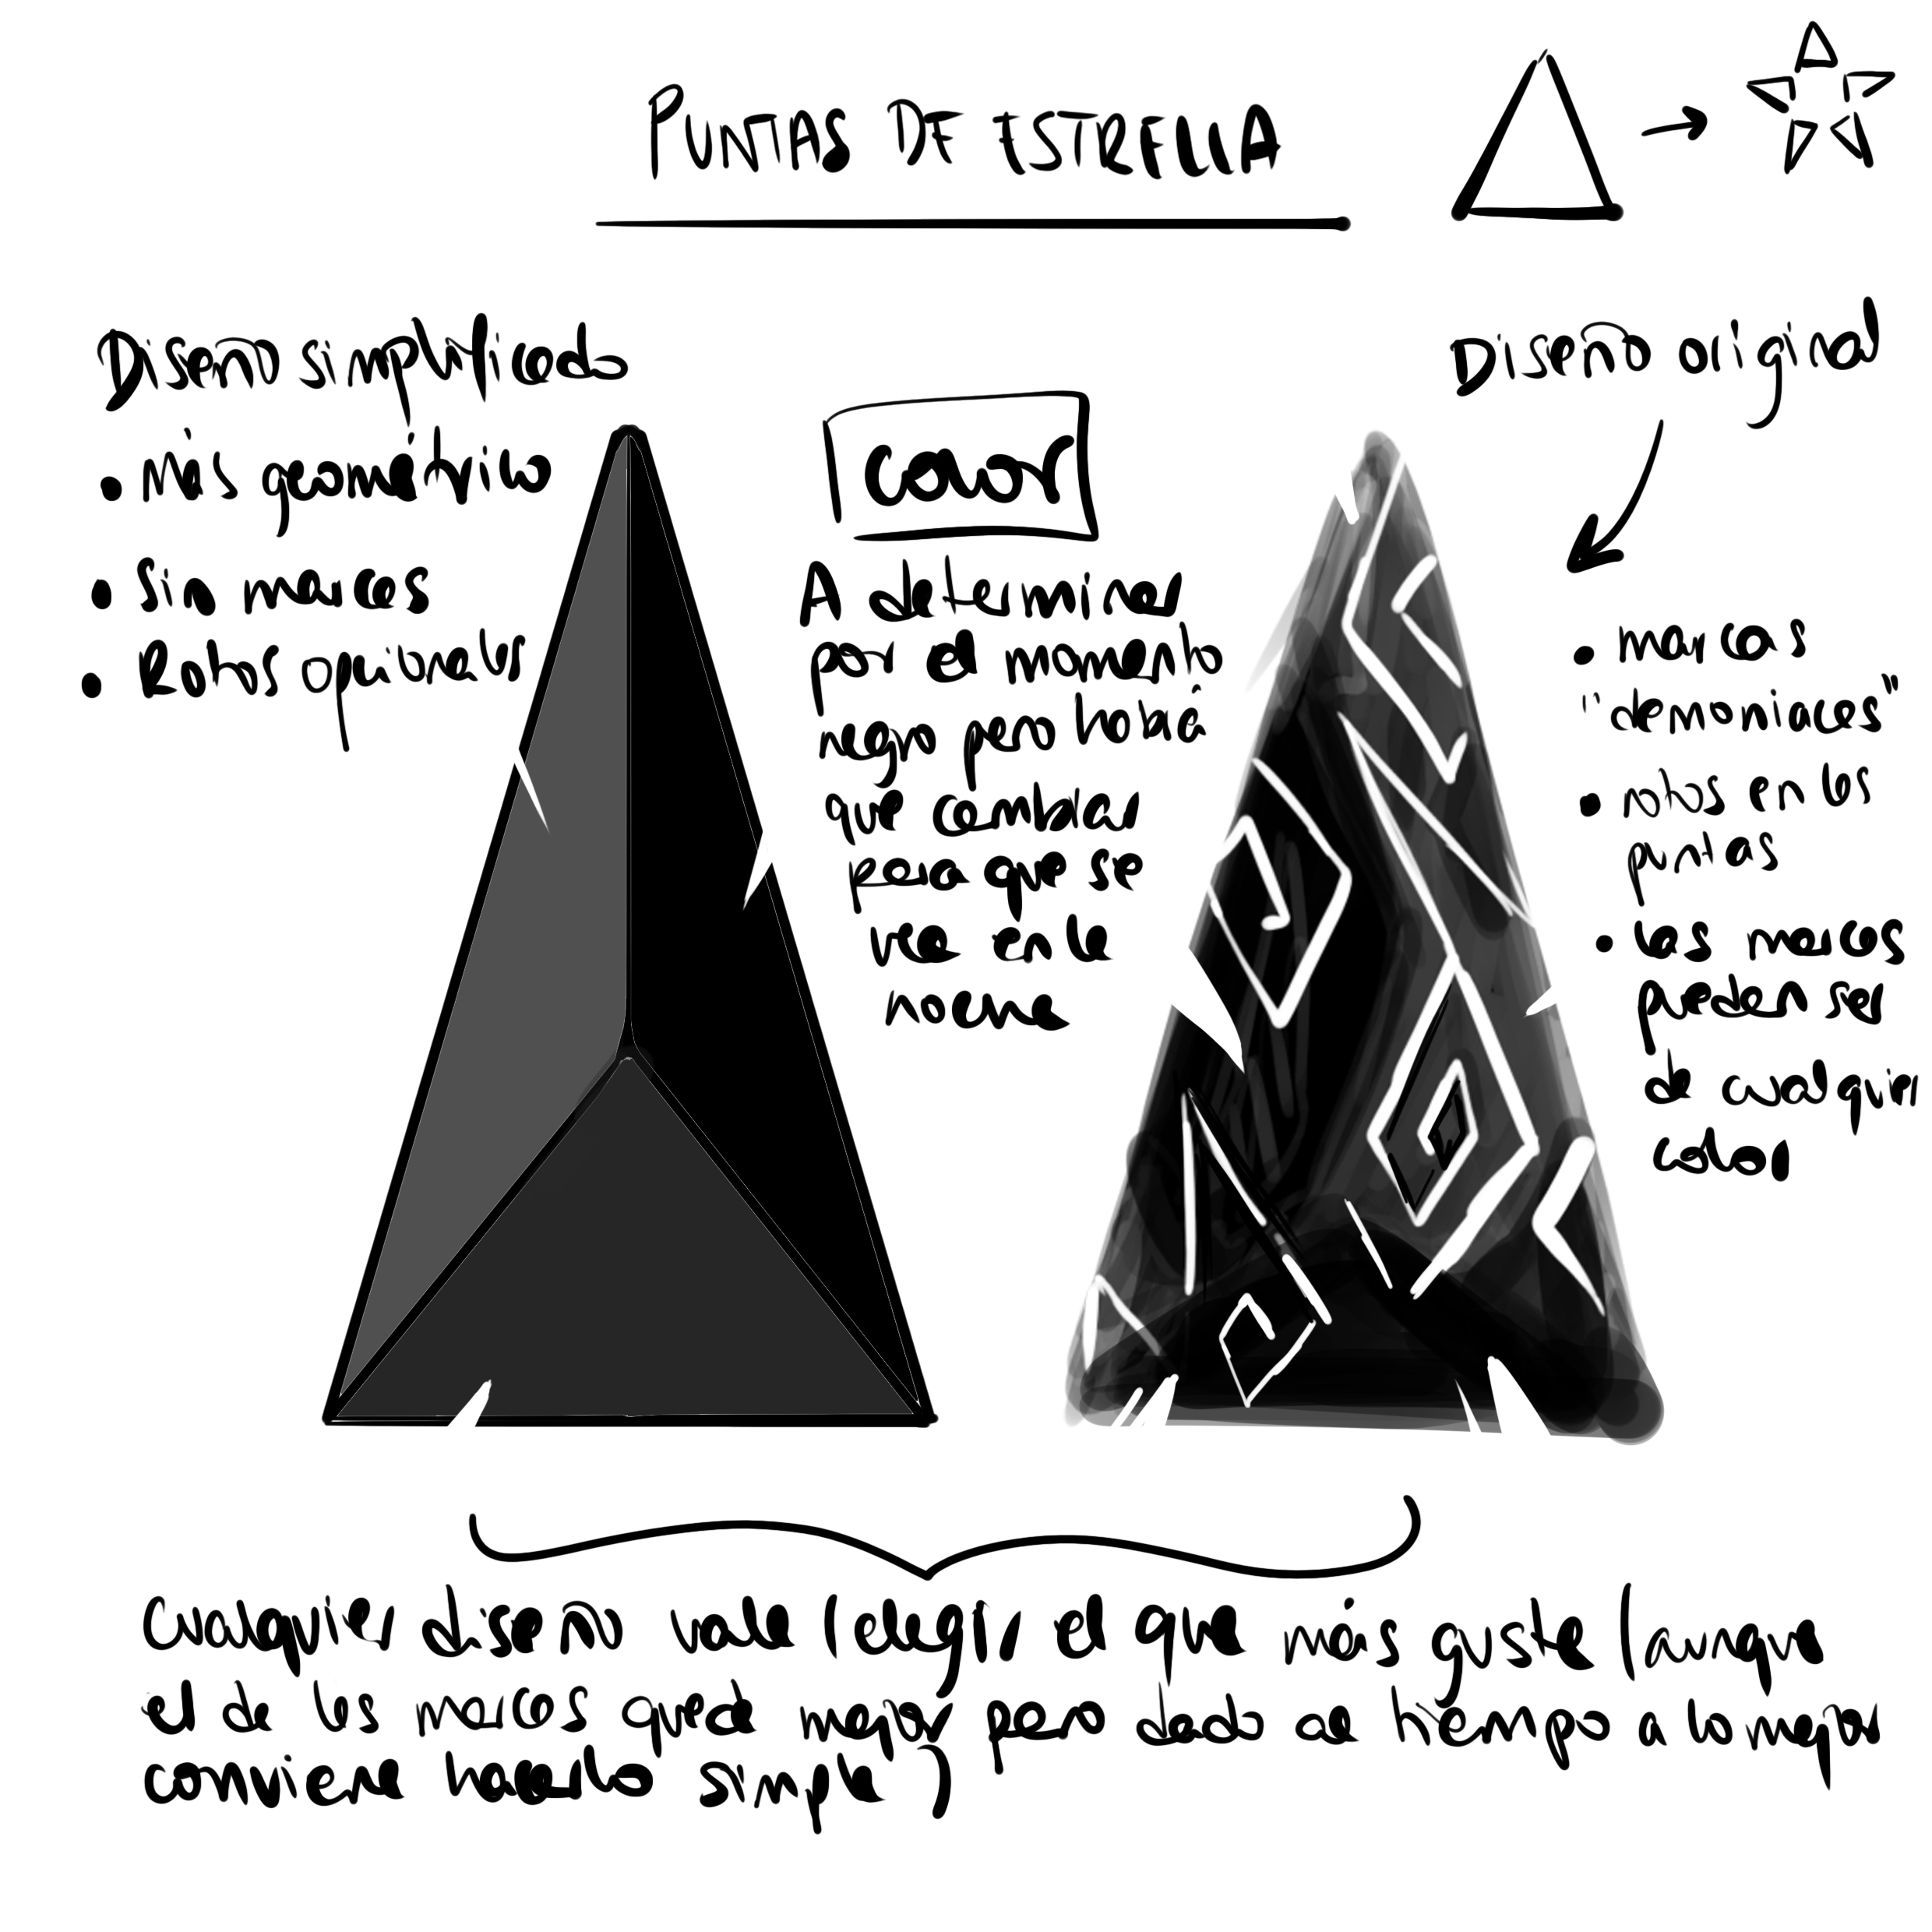 PUNTAS DE ESTRELLA
Diseño simplificado
• Más geométrico
• Sin marcas
• Rotos opcionales
color
A determinar
por el momento
negro pero habrá
que cambiar
para que se
vea en la
noche
Diseño original
• marcas
"demoniacas"
• rotos en las
puntas
• las marcas
pueden ser
de cualquier
color
Cualquier diseño vale (elegir el que más guste (aunque
el de las marcas queda mejor pero dado al tiempo a lo mejor
conviene hacerlo simple)